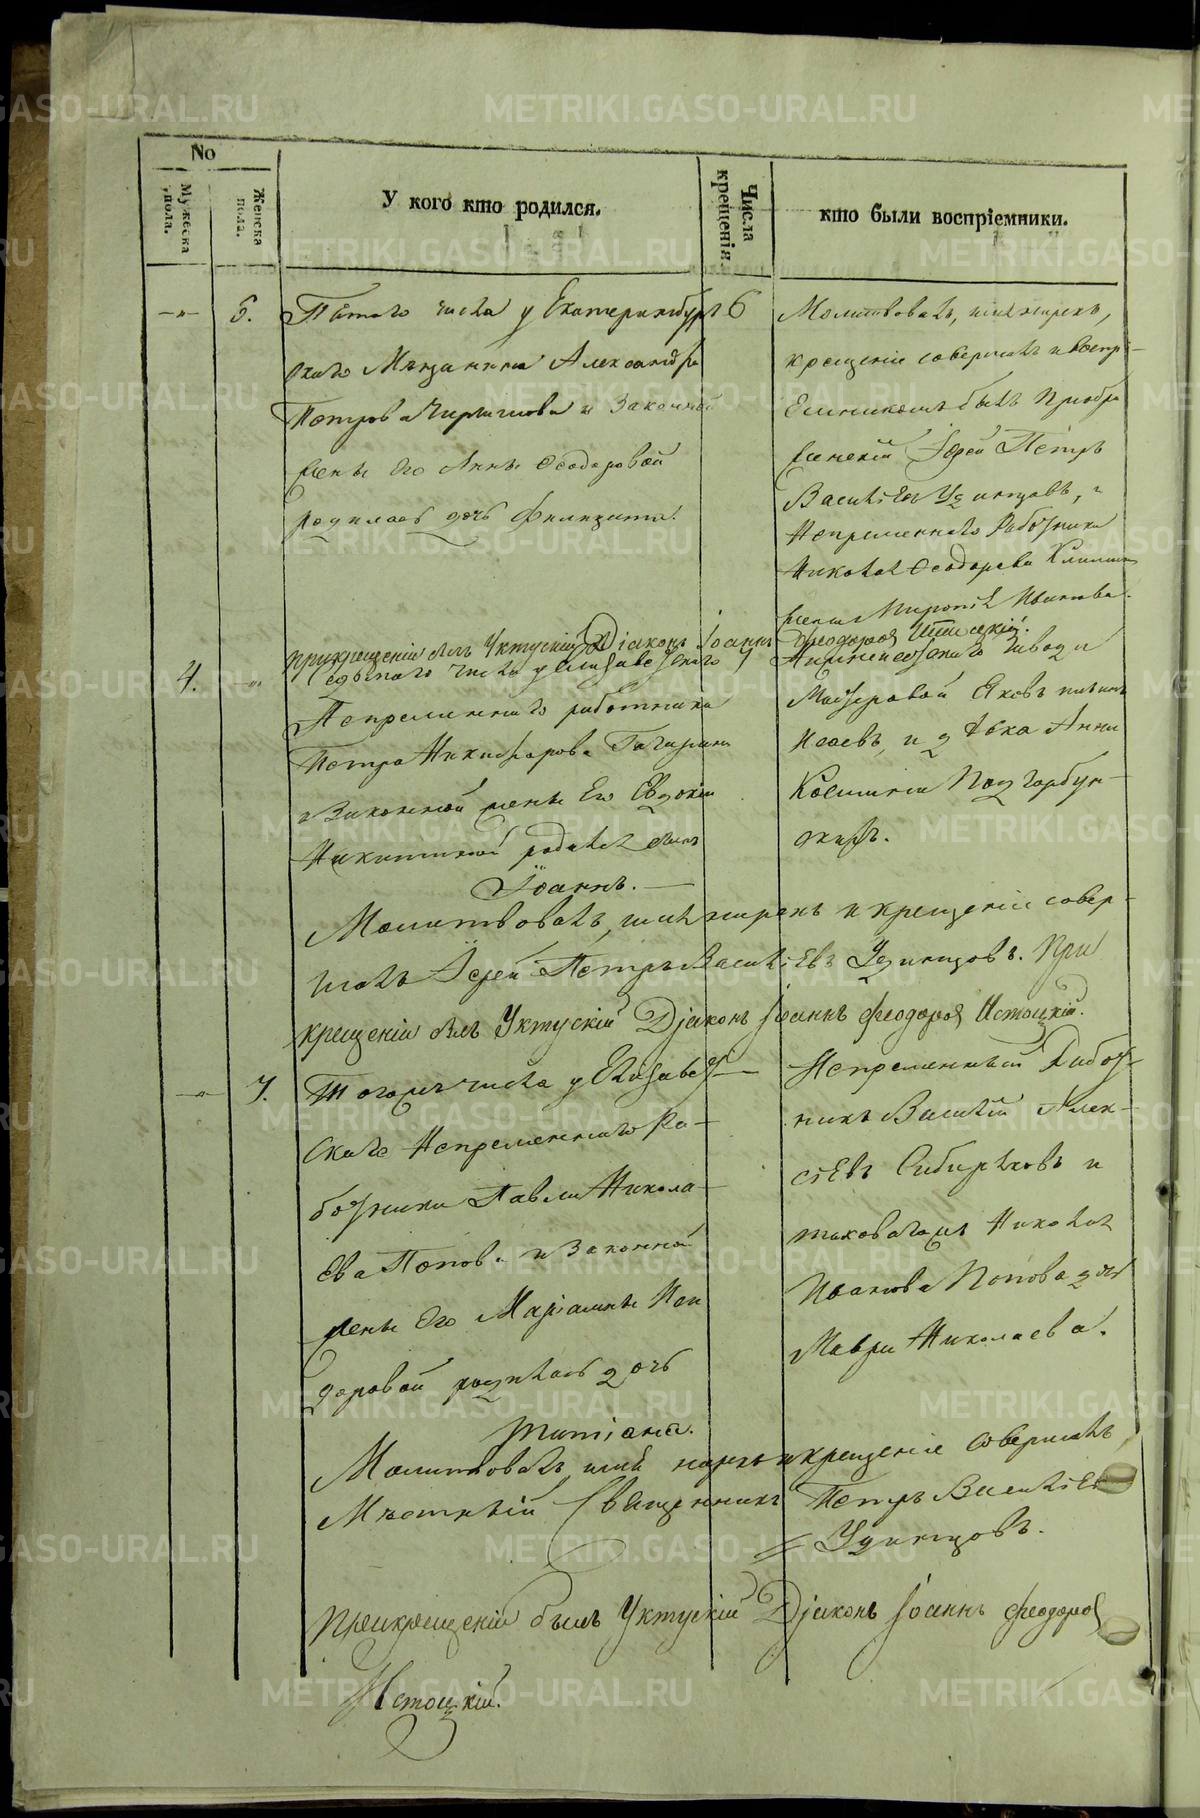 No
Мужеска пола.
Женска пола.
У кого кто родился.
Числа крещенія.
кто были воспріемники.
6.
Пятаго числа у Екатеринбург
скаго Мѣщанина Александра
Петрова и Законной
жены Его Анны Феодоровой
родилась дочь Филицата.
6
Молитвовалъ, имя нарекъ,
крещеніе совершалъ и воспрі-
Емникомъ былъ Преобра
женскій Іерей Петръ
Василіевъ Удинцовъ, и
Непременнаго Работника
Николая Феодорова
жена Иванова.
при крещеніи былъ Уктускій Діаконъ Іоаннъ Феодоровъ Истоцкій.
4.
седьмаго числа у Елизаветскаго
Непременнаго работника
Петра Никифорова
и Законной жены Его Евдокіи
Никитиной родился сынъ
Іоаннъ.
7
завода
Мастеровой Яковъ
Исаевъ, и девка Анна
Козмина Подгорбун-
скихъ.
Молитвовалъ, имя нарекъ и крещеніе совер-
шалъ Іерей Петръ Василіевъ Удинцовъ. При
крещеніи былъ Уктускій Діаконъ Іоаннъ Феодоровъ Истоцкій.
7.
Тогожъ числа у Елизавет-
скаго Непременнаго Ра-
ботника Павла Никола-
Ева Попова и Законной
жены Его Маріамны Иси
доровой родилась дочь
Татіана.
Непременный Работ-
никъ Василій Алек-
сіевъ Сибиряковъ и
таковагожъ Николая
Иванова Попова дочь
Мавра Николаева.
Молитвовалъ, имя нарекъ и крещеніе совершалъ
Мѣстный Священникъ Петръ Василіевъ
Удинцовъ.
При крещеніи былъ Уктускій Діаконъ Іоаннъ Феодоровъ
Истоцкій.